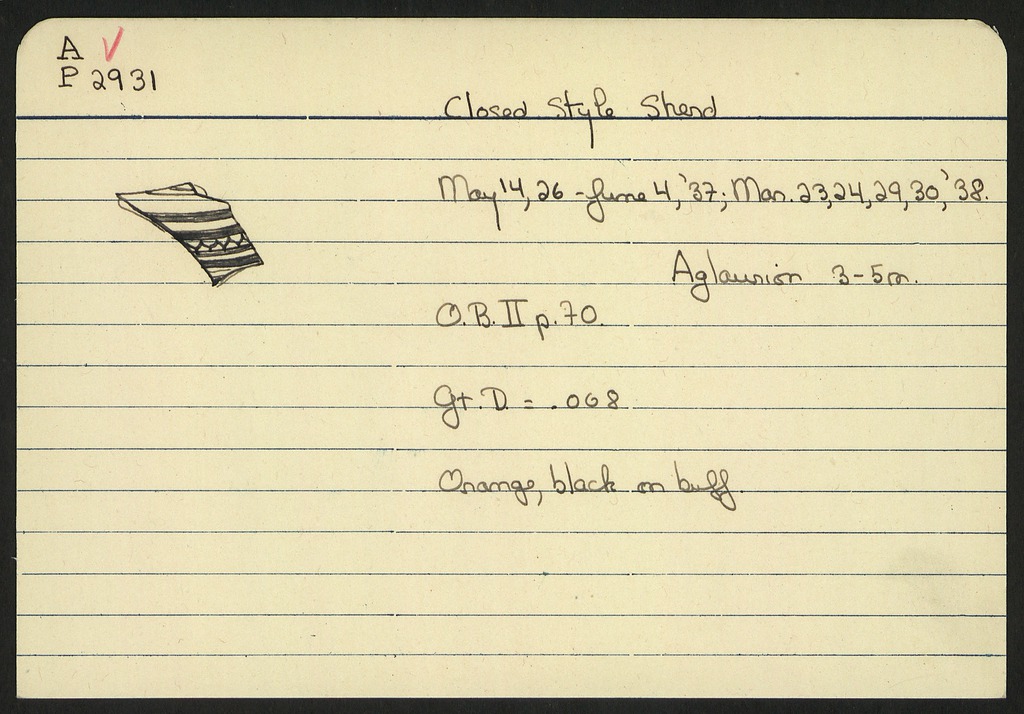 A
P 2931
Closed Style Sherd
May 14, 26 - June 4, '37; Mar. 23, 24, 29, 30, '38.
Aglaurion 3-5m.
O.B. II p. 70.
Gt. D. = .068
Orange, black on buff.